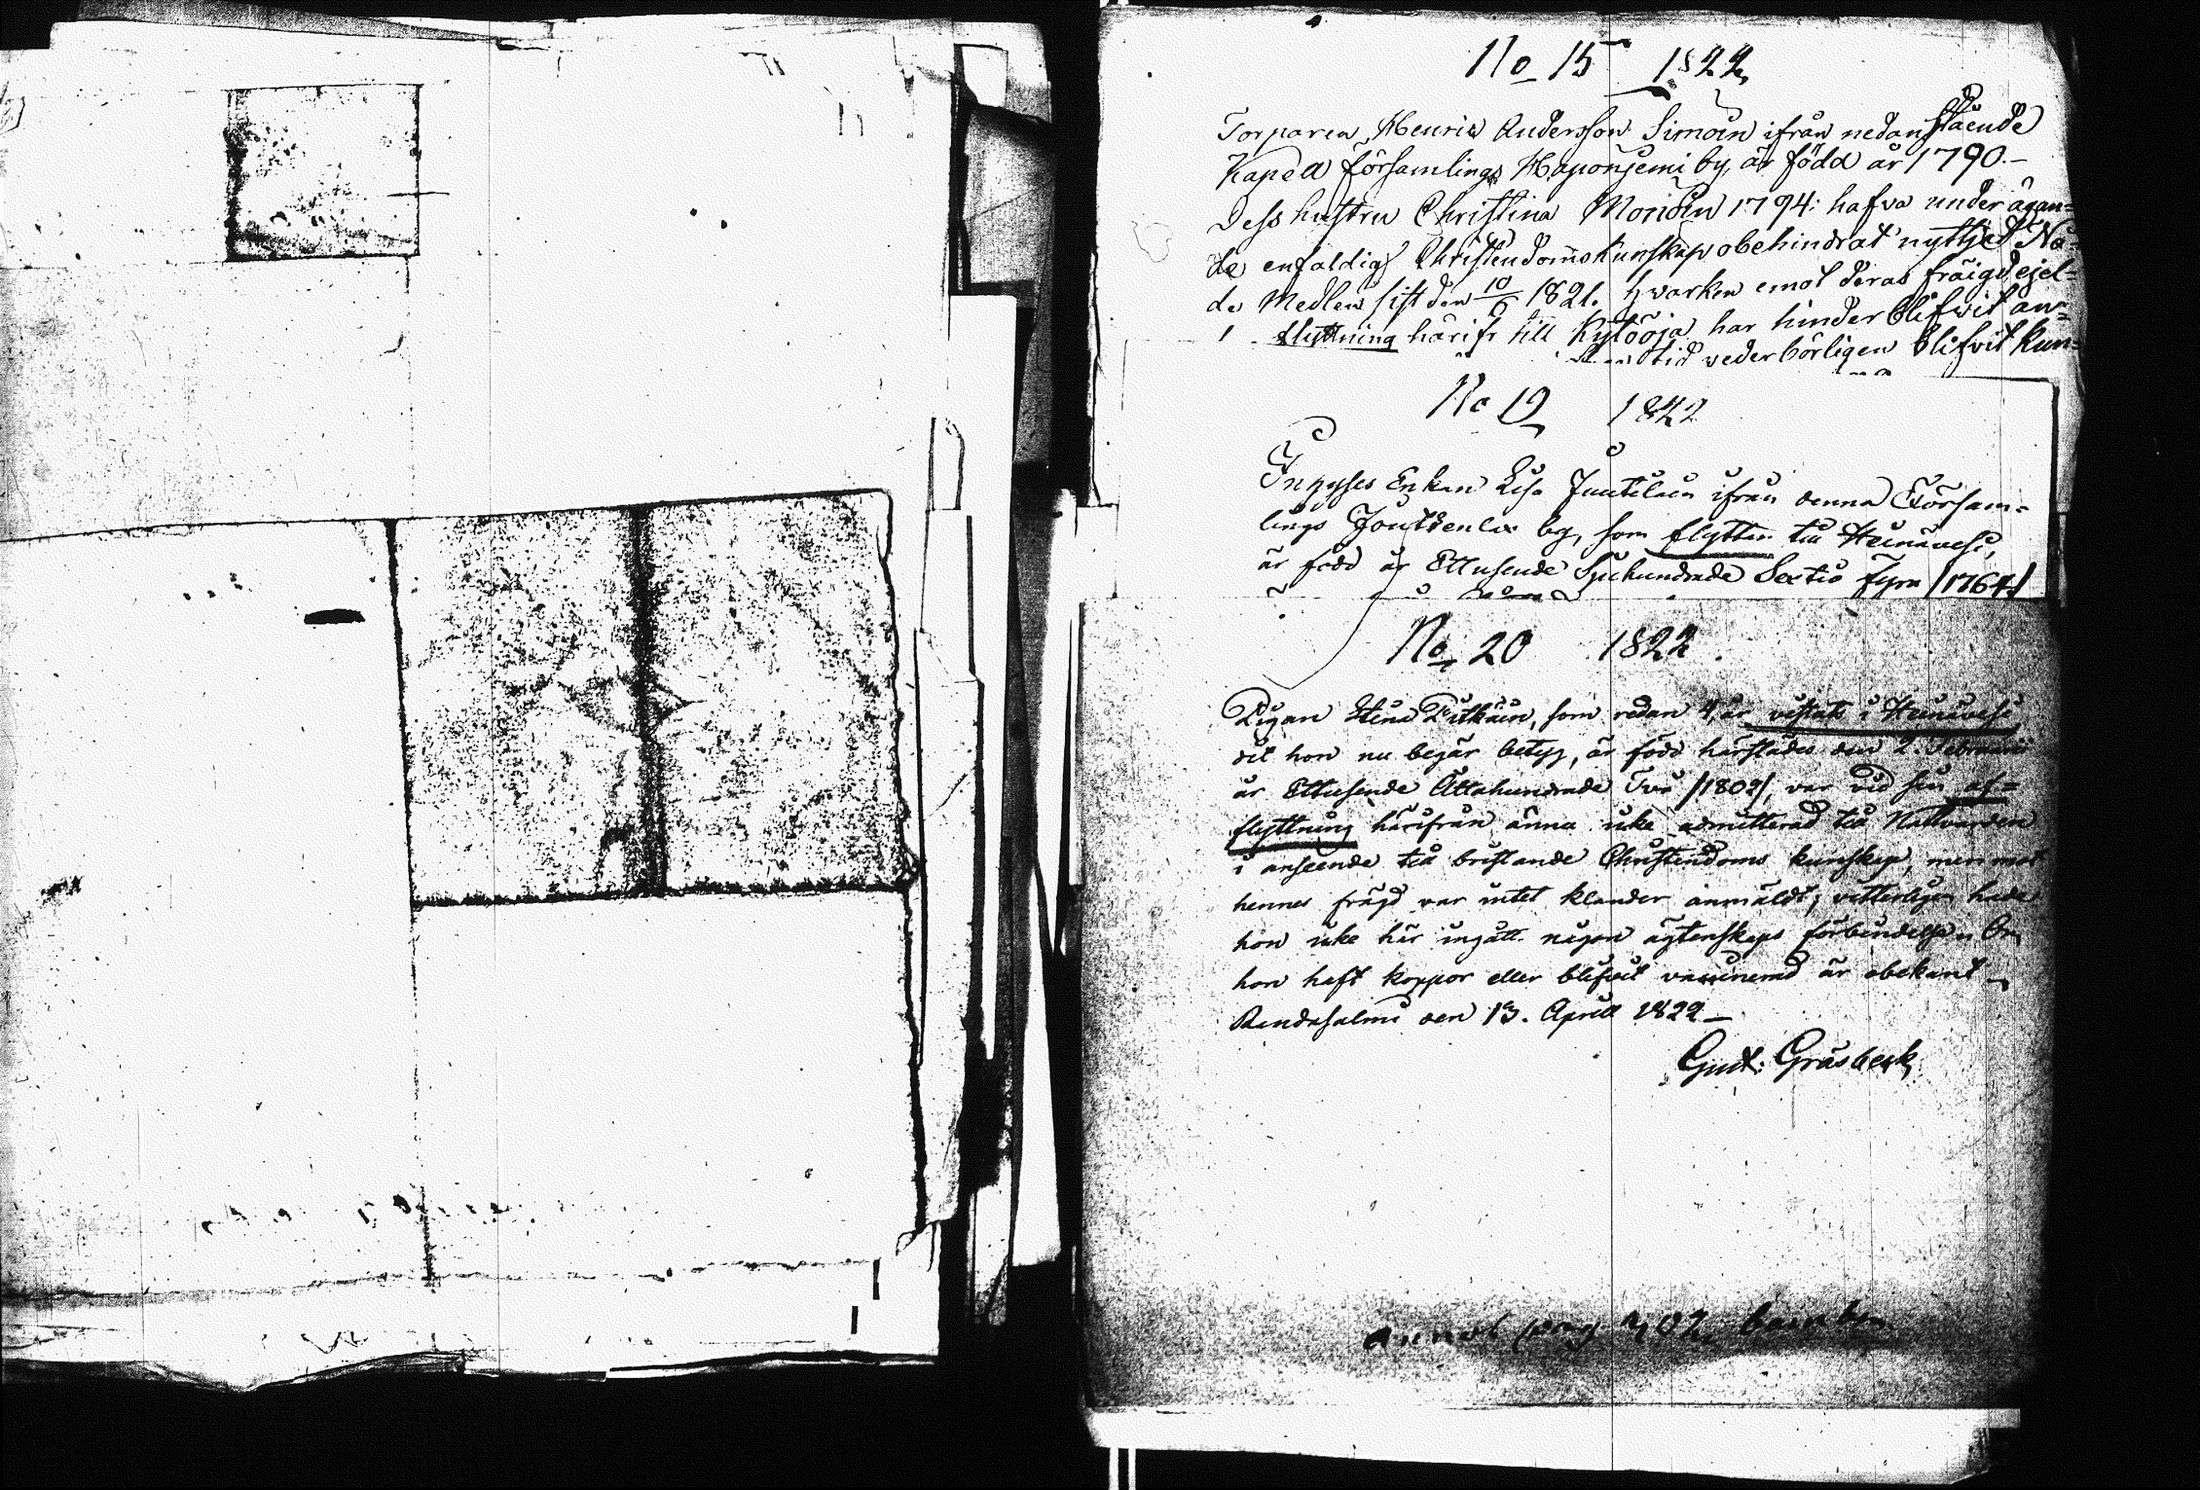 No 15 1822
Torparen Henric Andersson Simoin ifrån nedanstående
Kapell församlings Haponjemi by, är född år 1790.–
Dess hustru Christina 1794: hafva under ägan=
de enfaldig Christendoms kunskap obehindrat nyttjed Nå=
de Medlen sist den 10/6 1821. hvarken emot deras fräigd ejel=
flyttning härifr till Kylöoja har hinder blifvit an=
tid vederbörligen blifvit kun=
No 19 1822
Inhyses Enkan Lisa Juutilain ifrån denna Försam=
lings by, som flytter till Heinävesi,
är född år Ettusende Sjuhundrade Sextio fyra /1764/
No 20 1822
Pigan Stina Pitkäin, som redan 4 år vistats i Heinävesi
dit hon nu begär betyg, är född härstädes den 2. Februarii
år Ettusende Åttahundrade Två /1802/, var vid sin af=
flyttning härifrån änna icke admitterad till Nattvarden
i anseende till bristande Christendoms kunskap, men mot
hennes frägd var intet klander anmäldt; vitterligen hade
hon icke här ingått någon ägtenskaps förbindelse. Om
hon haft koppor eller blifvit vaccinerad är obekant –
Randasalmi den 13. Aprill 1822 –
Gust: Gräsbeck